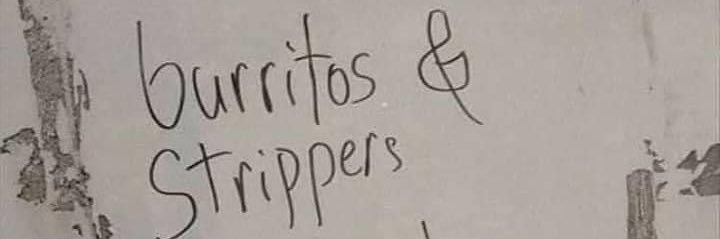 burritos &
Strippers